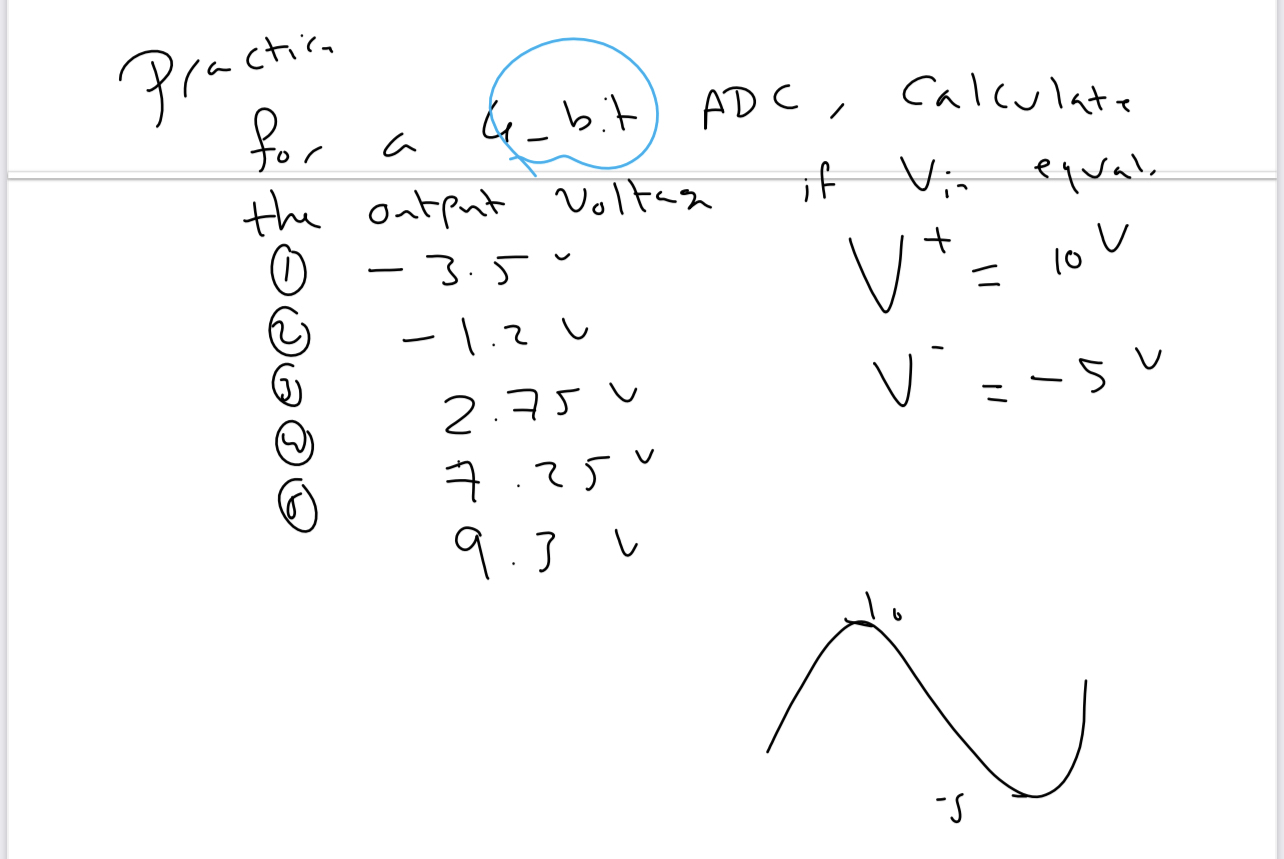 Practice
for a 4-bit ADC, Calculate
the output Voltage if Vin equal.
① -3.5 v
② -1.2 v
③ 2.75 v
④ 7.25 v
⑤ 9.3 v
V+ = 10 V
V- = -5 V
10
-5